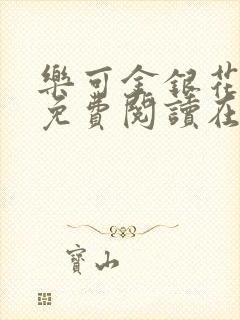 樂可金銀花
免費閱讀在
寶山